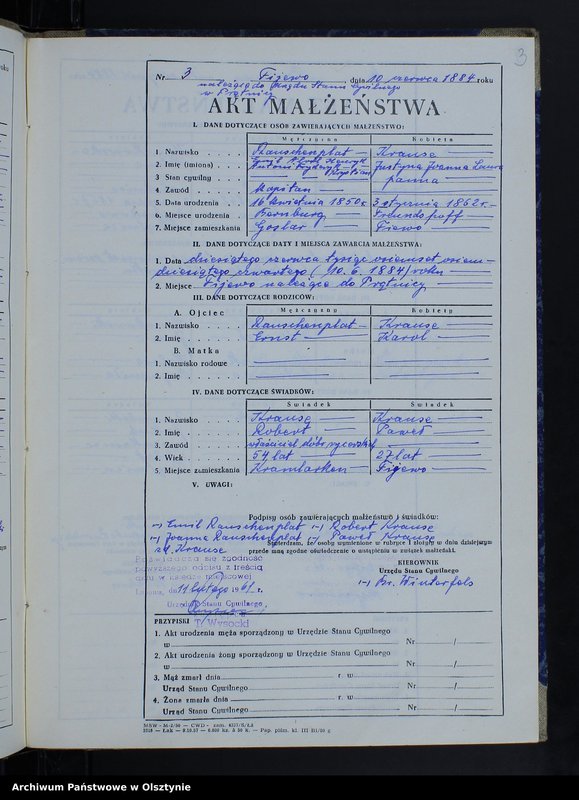 3
Nr 3 Fijewo, dnia 10 czerwca 1884 roku
należące do Urzędu Stanu Cywilnego
w Prętnicy
AKT MAŁŻEŃSTWA
I. DANE DOTYCZĄCE OSÓB ZAWIERAJĄCYCH MAŁŻEŃSTWO:
Mężczyzna Kobieta
1. Nazwisko . . . . Rauschenplat — Krause —
2. Imię (imiona) . . Emil Henryk Justyna Joanna Laura
Antoni Fryderyk
3. Stan cywilny . . — panna —
4. Zawód . . . . . Kapitan — —
5. Data urodzenia . . 16 kwietnia 1850 r. 3 stycznia 1862 r. —
6. Miejsce urodzenia . Bernburg —
7. Miejsce zamieszkania Goslar — Fiewo —
II. DANE DOTYCZĄCE DATY I MIEJSCA ZAWARCIA MAŁŻEŃSTWA:
1. Data dziesiątego czerwca tysiąc osiemset osiem-
dziesiątego czwartego (10. 6. 1884) roku —
2. Miejsce Fijewo należące do Prętnicy —
III. DANE DOTYCZĄCE RODZICÓW:
Mężczyzny Kobiety
A. Ojciec
1. Nazwisko . . . . Rauschenplat — Krause —
2. Imię . . . . . . Ernst — Karol —
B. Matka
1. Nazwisko rodowe . — —
2. Imię . . . . . . — —
IV. DANE DOTYCZĄCE ŚWIADKÓW:
Świadek Świadek
1. Nazwisko . . . . Krause — Krause —
2. Imię . . . . . . Robert — Paweł —
3. Zawód . . . . . właściciel dóbr rycerskich —
4. Wiek . . . . . . 54 lat — 27 lat —
5. Miejsce zamieszkania Kramarken — Fijewo —
V. UWAGI:
Podpisy osób zawierających małżeństwo i świadków:
(-) Emil Rauschenplat (-) Robert Krause
(-) Joanna Rauschenplat (-) Paweł Krause
zd. Krause
Stwierdzam, że osoby wymienione w rubryce I złożyły w dniu dzisiejszym
przede mną zgodne oświadczenie o wstąpieniu w związek małżeński.
Poświadcza się zgodność
powyższego odpisu z treścią
aktu w księdze miejscowej
KIEROWNIK
Urzędu Stanu Cywilnego
dnia 11 lutego 1961 r.
(-) Br. Winterfels
Urzędu Stanu Cywilnego
T. Wysocki
PRZYPISKI
1. Akt urodzenia męża sporządzony w Urzędzie Stanu Cywilnego
w Nr /
2. Akt urodzenia żony sporządzony w Urzędzie Stanu Cywilnego
w Nr /
3. Mąż zmarł dnia r. w
Urząd Stanu Cywilnego Nr /
4. Żona zmarła dnia r. w
Urząd Stanu Cywilnego Nr /
Archiwum Państwowe w Olsztynie